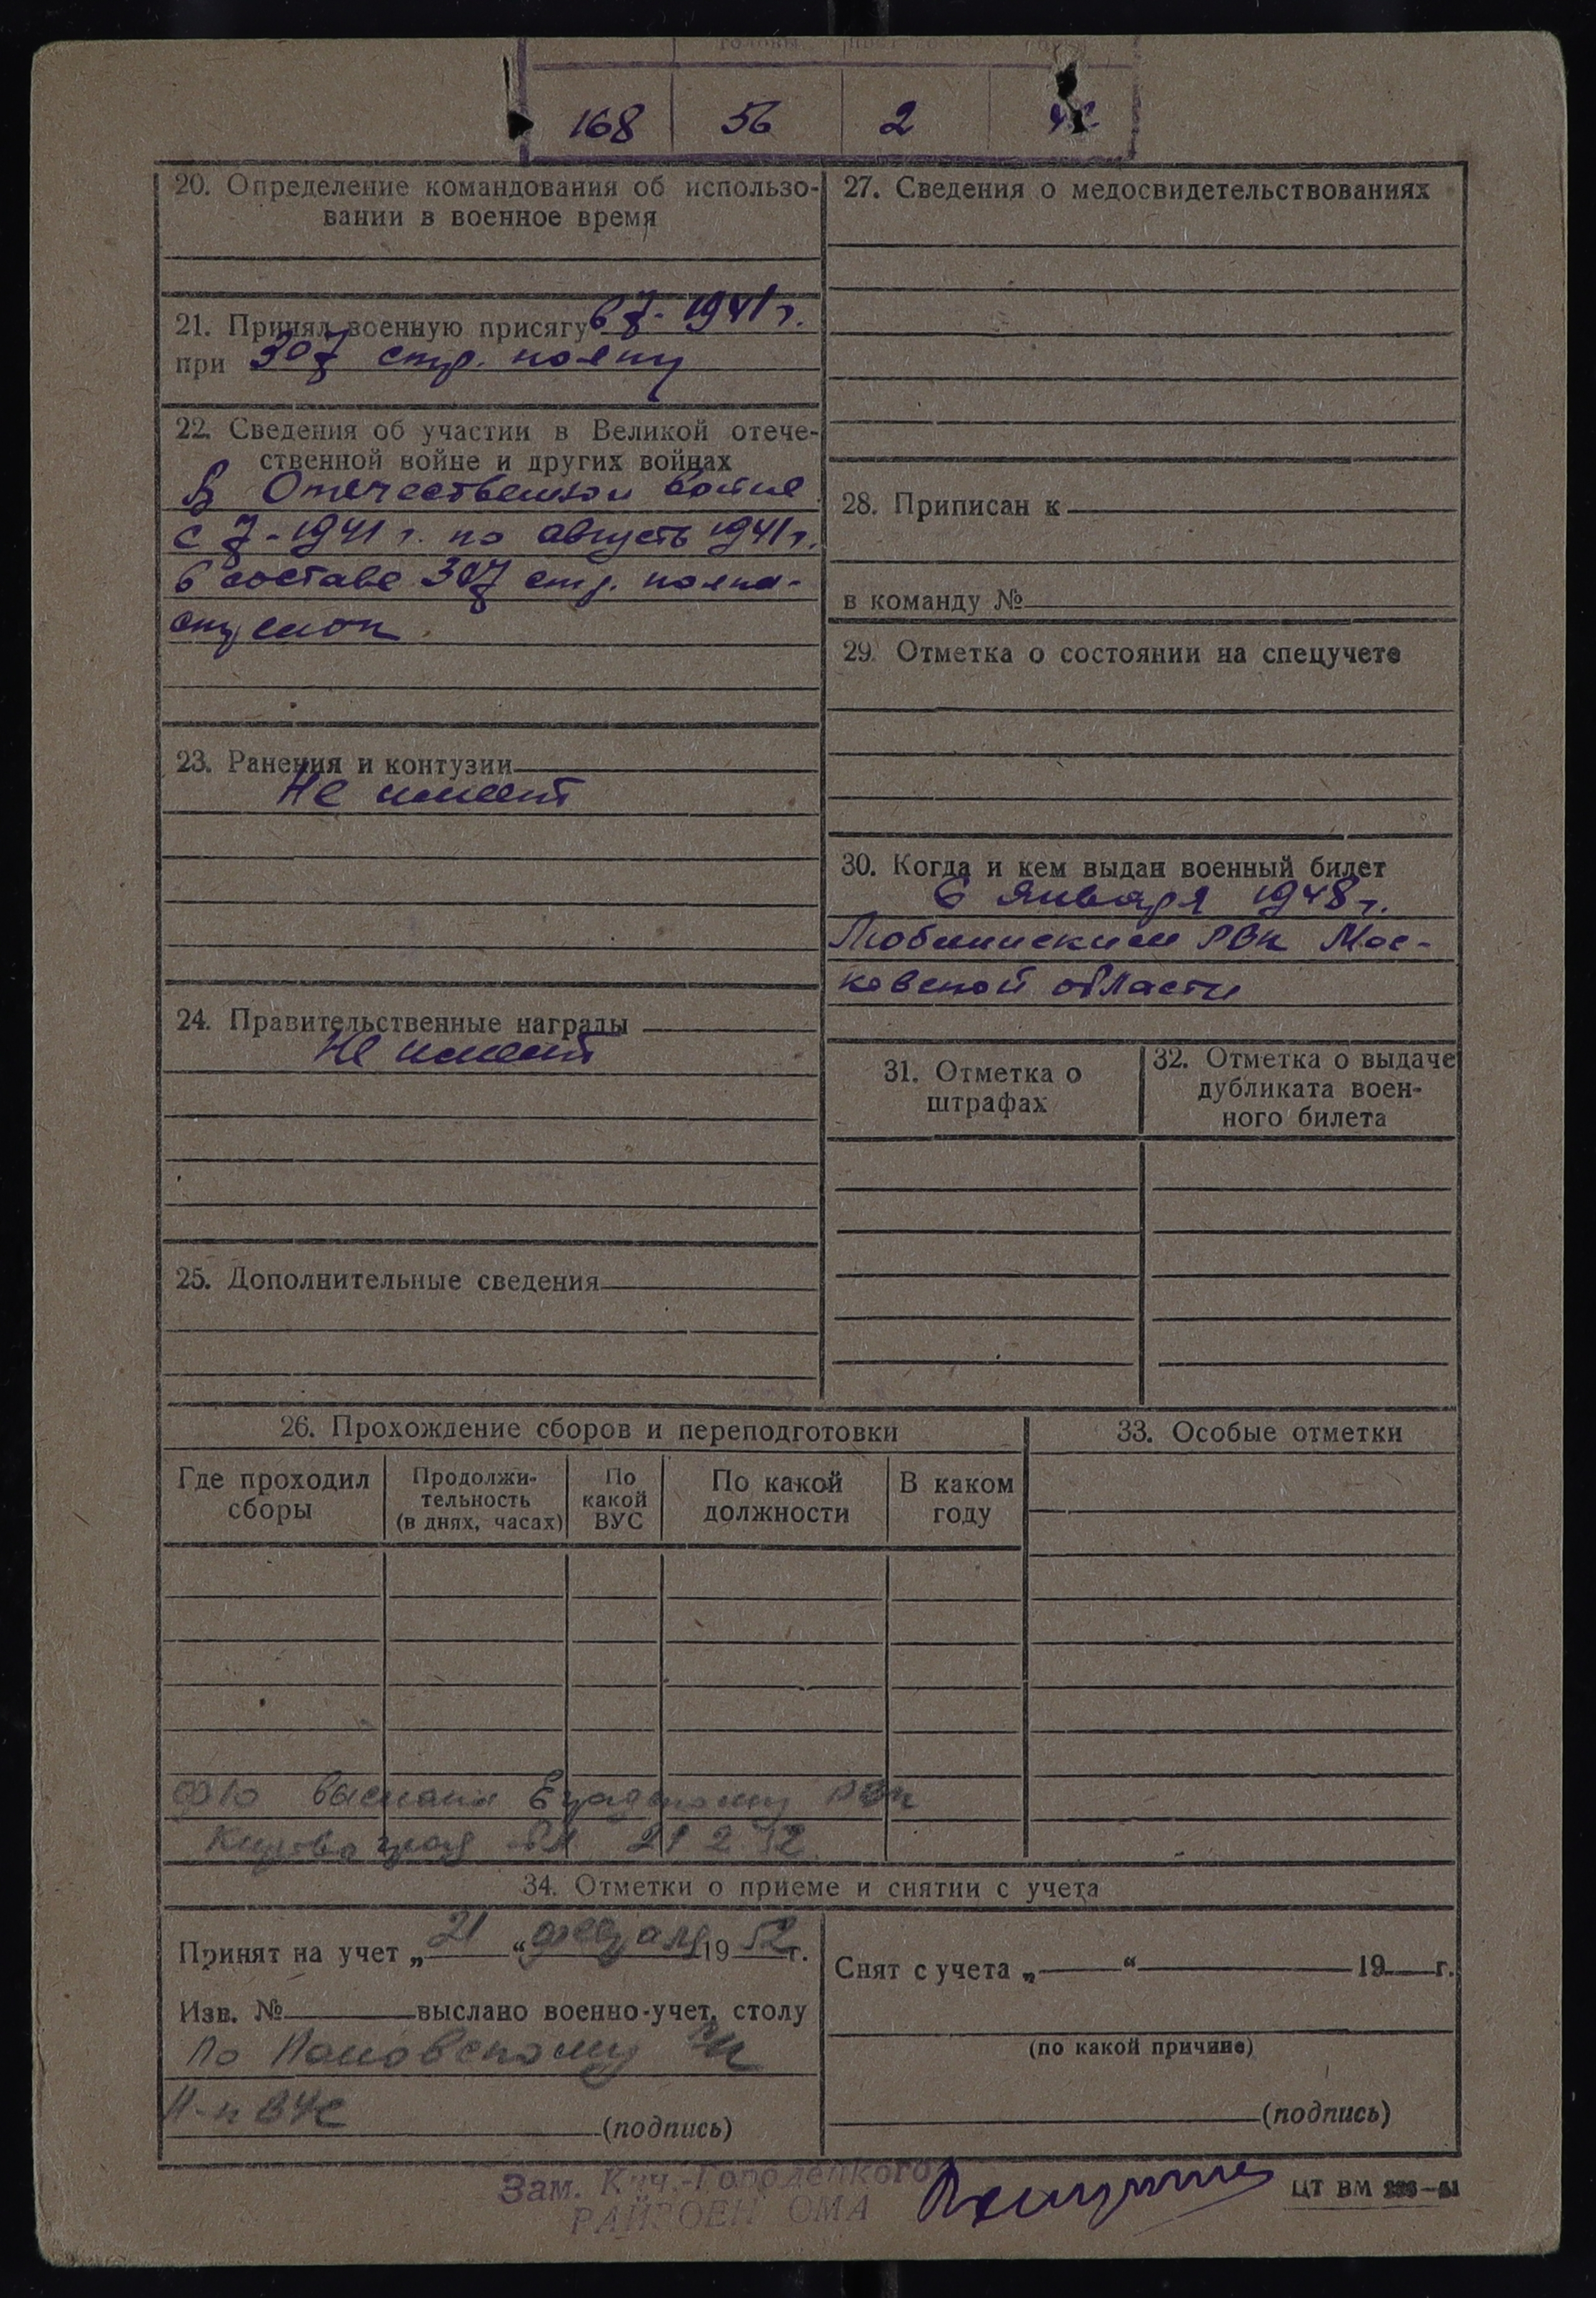 168 56 2
20. Определение командования об использо-
вании в военное время
21. Принял военную присягу в 7-1941 г.
при 307 стр. полку
22. Сведения об участии в Великой отече-
ственной войне и других войнах
В Отечественной войне
с 7-1941 г. по августъ 1941 г.
в составе 307 стр. полка-
23. Ранения и контузии
Не имеет
24. Правительственные награды
Не имеет
25. Дополнительные сведения
27. Сведения о медосвидетельствованиях
28. Приписан к
в команду №
29. Отметка о состоянии на спецучете
30. Когда и кем выдан военный билет
6 января 1948 г.
РВК Мос-
ковской области
31. Отметка о
штрафах
32. Отметка о выдаче
дубликата воен-
ного билета
26. Прохождение сборов и переподготовки
Где проходил
сборы
Продолжи-
тельность
(в днях, часах)
По
какой
ВУС
По какой
должности
В каком
году
33. Особые отметки
выслана РВК
21 2 52
34. Отметки о приеме и снятии с учета
Принят на учет „21“ февраля 1952 г.
Изв. № выслано военно-учет. столу
По
(подпись)
Снят с учета „ “ 19 г.
(по какой причине)
(подпись)
Зам. Кич.-Городецкого
РАЙВОЕНКОМА
ЦТ ВМ